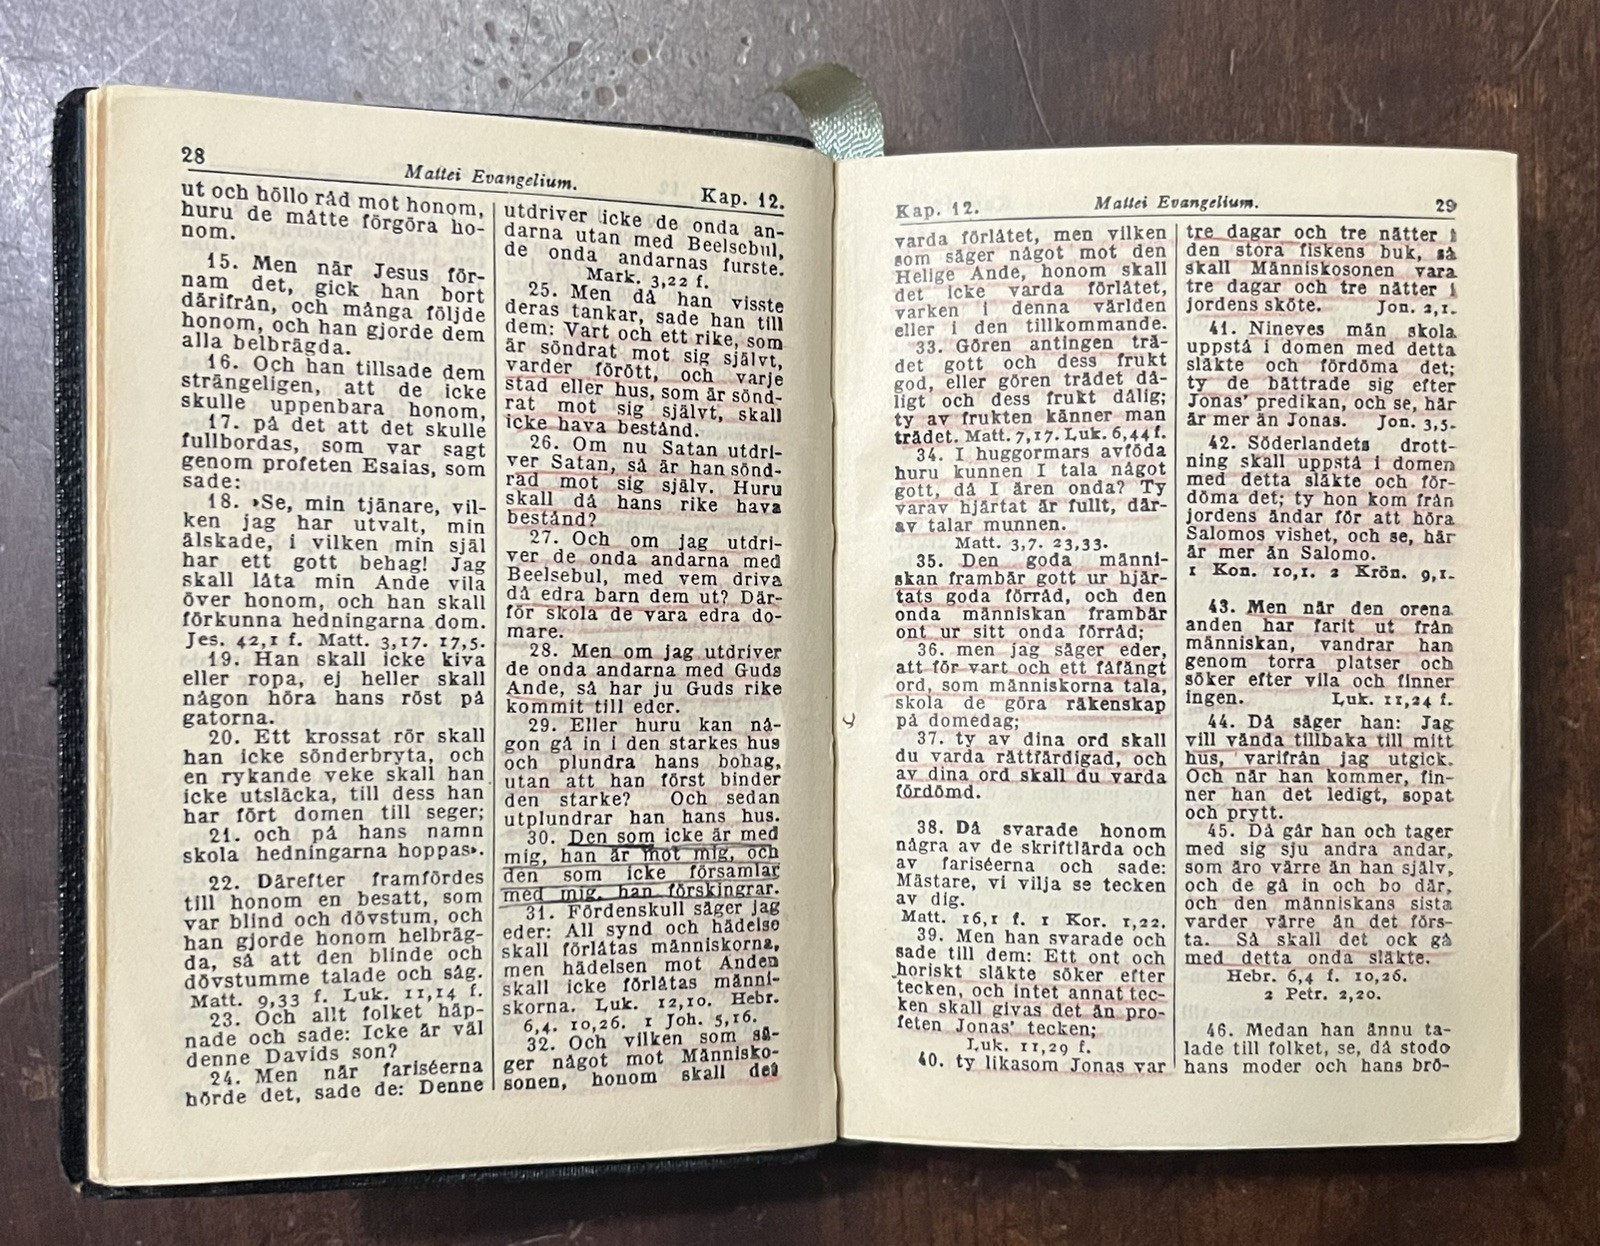 28
Mattei Evangelium.
Kap. 12.
ut och höllo råd mot honom,
huru de måtte förgöra ho-
nom.
15. Men när Jesus för-
nam det, gick han bort
därifrån, och många följde
honom, och han gjorde dem
alla belbrägda.
16. Och han tillsade dem
strängeligen, att de icke
skulle uppenbara honom,
17. på det att det skulle
fullbordas, som var sagt
genom profeten Esaias, som
sade:
18. »Se, min tjänare, vil-
ken jag har utvalt, min
älskade, i vilken min själ
har ett gott behag! Jag
skall låta min Ande vila
över honom, och han skall
förkunna hedningarna dom.
Jes. 42,1 f. Matt. 3,17. 17,5.
19. Han skall icke kiva
eller ropa, ej heller skall
någon höra hans röst på
gatorna.
20. Ett krossat rör skall
han icke sönderbryta, och
en rykande veke skall han
icke utsläcka, till dess han
har fört domen till seger;
21. och på hans namn
skola hedningarna hoppas».
22. Därefter framfördes
till honom en besatt, som
var blind och dövstum, och
han gjorde honom helbräg-
da, så att den blinde och
dövstumme talade och såg.
Matt. 9,33 f. Luk. 11,14 f.
23. Och allt folket häp-
nade och sade: Icke är väl
denne Davids son?
24. Men när fariséerna
hörde det, sade de: Denne
utdriver icke de onda an-
darna utan med Beelsebul,
de onda andarnas furste.
Mark. 3,22 f.
25. Men då han visste
deras tankar, sade han till
dem: Vart och ett rike, som
är söndrat mot sig självt,
varder förött, och varje
stad eller hus, som är sönd-
rat mot sig självt, skall
icke hava bestånd.
26. Om nu Satan utdri-
ver Satan, så är han sönd-
rad mot sig själv. Huru
skall då hans rike hava
bestånd?
27. Och om jag utdri-
ver de onda andarna med
Beelsebul, med vem driva
då edra barn dem ut? Där-
för skola de vara edra do-
mare.
28. Men om jag utdriver
de onda andarna med Guds
Ande, så har ju Guds rike
kommit till eder.
29. Eller huru kan nå-
gon gå in i den starkes hus
och plundra hans bohag,
utan att han först binder
den starke? Och sedan
utplundrar han hans hus.
30. Den som icke är med
mig, han är mot mig, och
den som icke församlar
med mig, han förskingrar.
31. Fördenskull säger jag
eder: All synd och hädelse
skall förlåtas människorna,
men hädelsen mot Anden
skall icke förlåtas männi-
skorna. Luk. 12,10. Hebr.
6,4. 10,26. 1 Joh. 5,16.
32. Och vilken som sä-
ger något mot Människo-
sonen, honom skall det
Kap. 12.
Mattei Evangelium.
29
varda förlåtet, men vilken
som säger något mot den
Helige Ande, honom skall
det icke varda förlåtet,
varken i denna världen
eller i den tillkommande.
33. Gören antingen trä-
det gott och dess frukt
god, eller gören trädet då-
ligt och dess frukt dålig;
ty av frukten känner man
trädet. Matt. 7,17. Luk. 6,44 f.
34. I huggormars avföda
huru kunnen I tala något
gott, då I ären onda? Ty
varav hjärtat är fullt, där-
av talar munnen.
Matt. 3,7. 23,33.
35. Den goda männi-
skan frambär gott ur hjär-
tats goda förråd, och den
onda människan frambär
ont ur sitt onda förråd;
36. men jag säger eder,
att för vart och ett fåfängt
ord, som människorna tala,
skola de göra räkenskap
på domedag;
37. ty av dina ord skall
du varda rättfärdigad, och
av dina ord skall du varda
fördömd.
38. Då svarade honom
några av de skriftlärda och
av fariséerna och sade:
Mästare, vi vilja se tecken
av dig.
Matt. 16,1 f. 1 Kor. 1,22.
39. Men han svarade och
sade till dem: Ett ont och
horiskt släkte söker efter
tecken, och intet annat tec-
ken skall givas det än pro-
feten Jonas' tecken;
Luk. 11,29 f.
40. ty likasom Jonas var
tre dagar och tre nätter i
den stora fiskens buk, så
skall Människosonen vara
tre dagar och tre nätter i
jordens sköte. Jon. 2,1.
41. Nineves män skola
uppstå i domen med detta
släkte och fördöma det;
ty de bättrade sig efter
Jonas' predikan, och se, här
är mer än Jonas. Jon. 3,5.
42. Söderlandets drott-
ning skall uppstå i domen
med detta släkte och för-
döma det; ty hon kom från
jordens ändar för att höra
Salomos vishet, och se, här
är mer än Salomo.
1 Kon. 10,1. 2 Krön. 9,1.
43. Men när den orena
anden har farit ut från
människan, vandrar han
genom torra platser och
söker efter vila och finner
ingen. Luk. 11,24 f.
44. Då säger han: Jag
vill vända tillbaka till mitt
hus, varifrån jag utgick.
Och när han kommer, fin-
ner han det ledigt, sopat
och prytt.
45. Då går han och tager
med sig sju andra andar,
som äro värre än han själv,
och de gå in och bo där,
och den människans sista
varder värre än det förs-
ta. Så skall det ock gå
med detta onda släkte.
Hebr. 6,4 f. 10,26.
2 Petr. 2,20.
46. Medan han ännu ta-
lade till folket, se, då stodo
hans moder och hans brö-